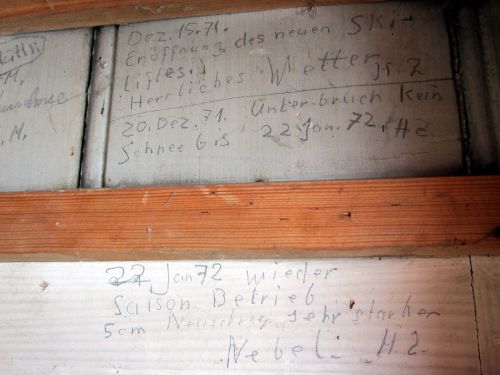 M.
. M.
Dez. 15. 71.
Eröffnung des neuen Ski-
liftes.
Herrliches Wetter
20. Dez. 71. Unter-bruch Kein
Schnee bis 22 Jan. 72. HZ.
22 Jan 72 wieder
Saison Betrieb
5cm Neuschnee sehr starker
Nebel. HZ.